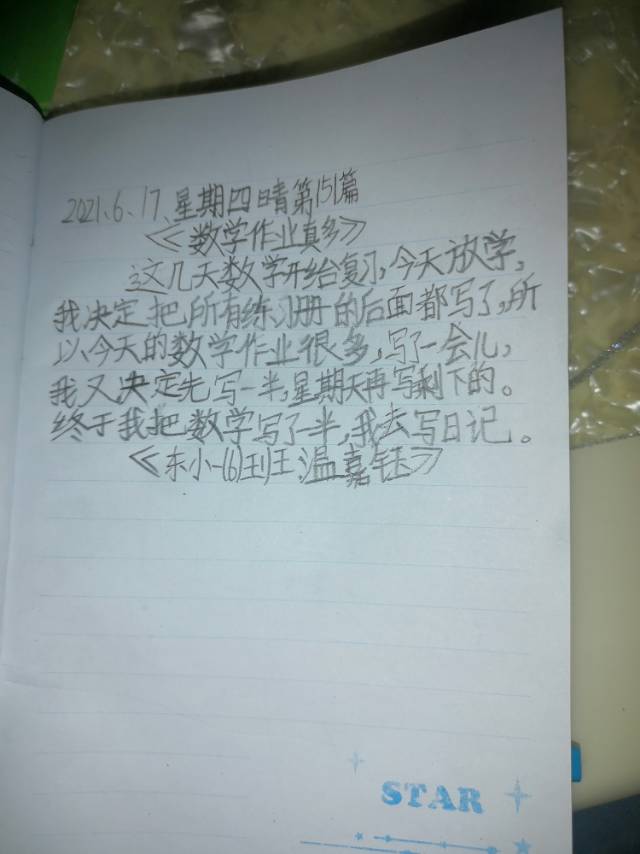 2021、6、17、星期四晴第151篇
《数学作业真多》
这几天数学开始复习,今天放学,
我决定把所有练习册的后面都写了,所
以、今天的数学作业很多,写了一会儿,
我又决定先写一半,星期天再写剩下的。
终于我把数学写了一半,我去写日记。
《东小一(6)班王温嘉钰》
STAR